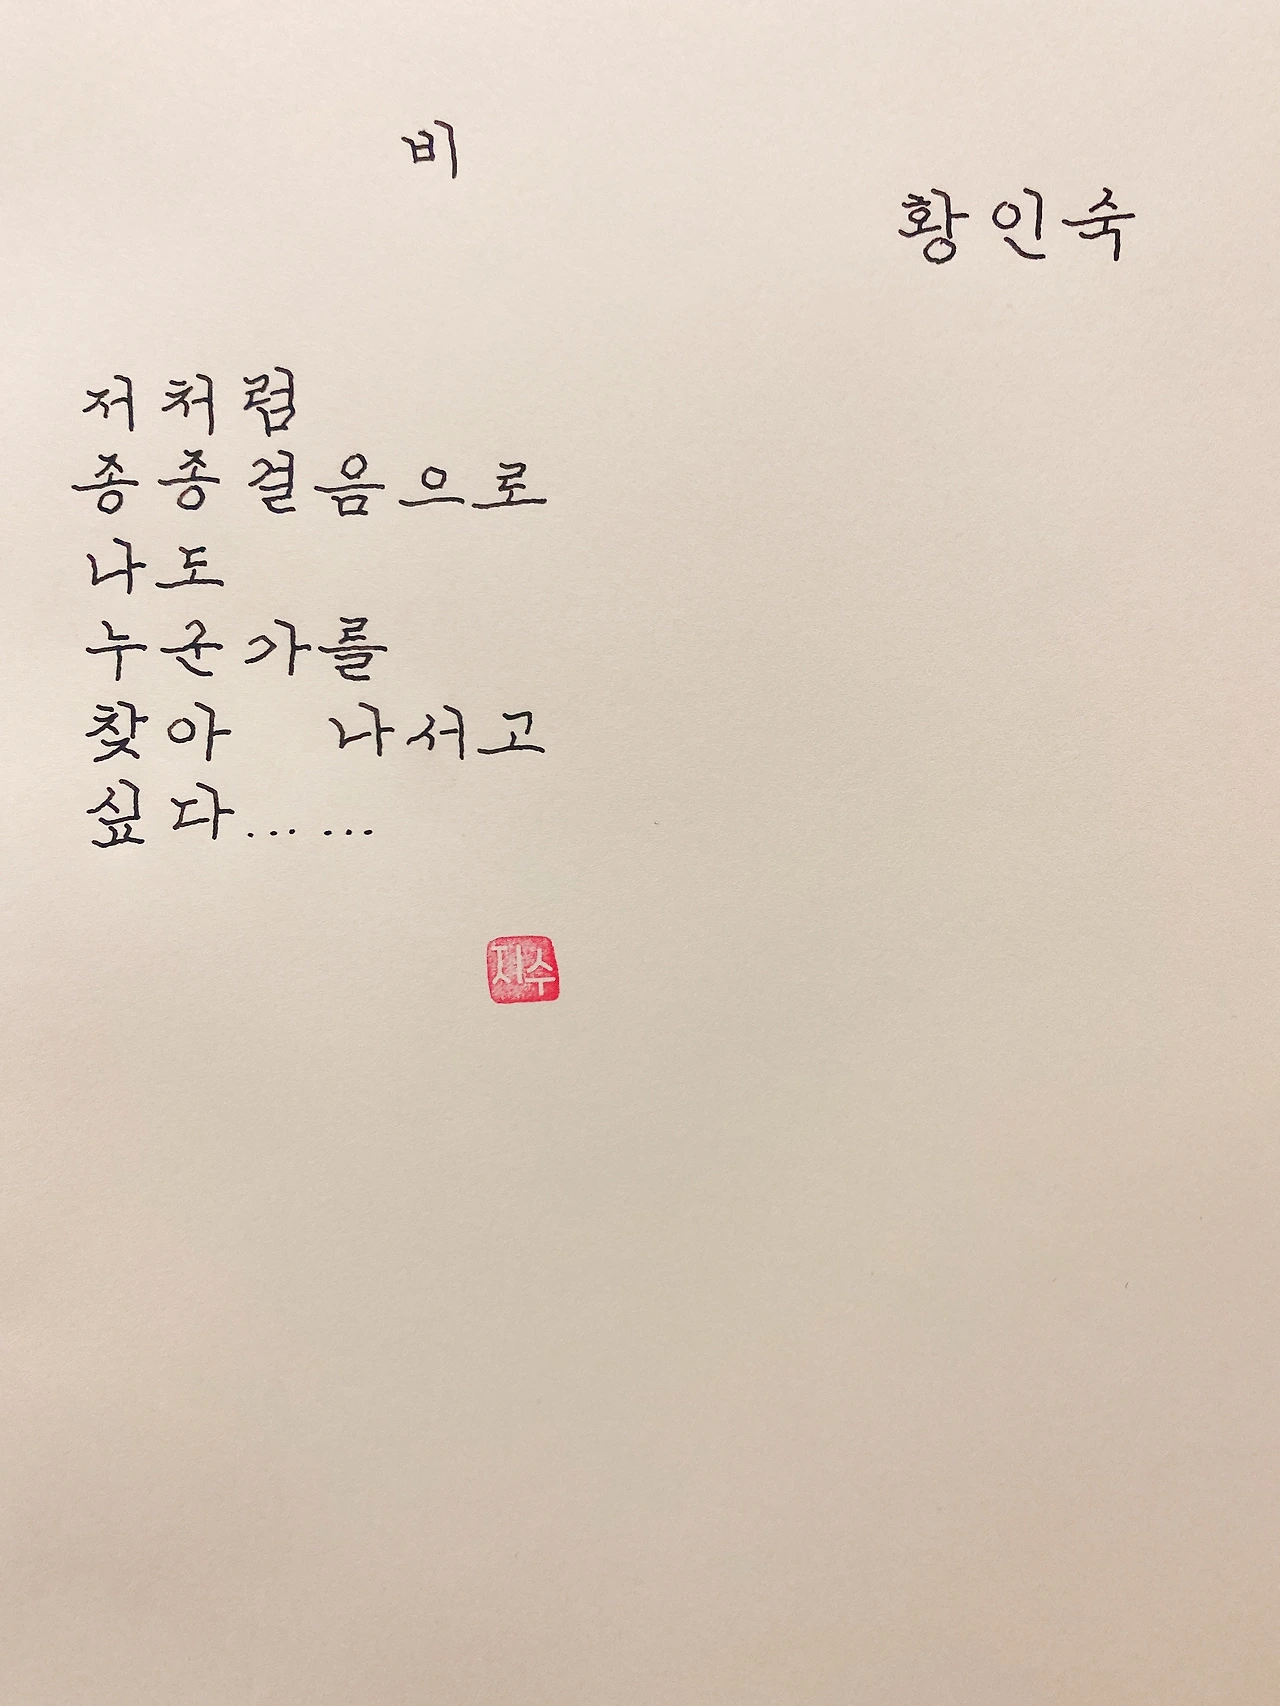 비
황인숙
저처럼
종종걸음으로
나도
누군가를
찾아 나서고
싶다……